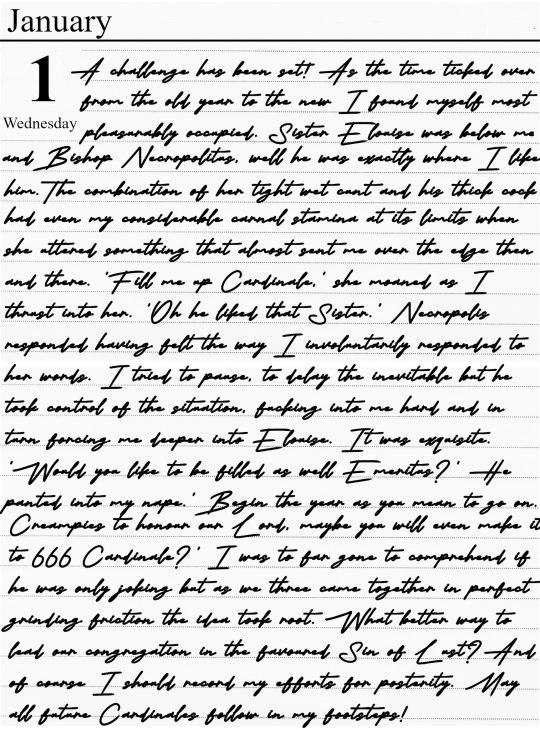 January
1
Wednesday
A challenge has been set! As the time ticked over
from the old year to the new I found myself most
pleasurably occupied. Sister Elouise was below me
and Bishop Necropolitus, well he was exactly where I like
him. The combination of her tight wet cunt and his thick cock
had even my considerable carnal stamina at its limits when
she uttered something that almost sent me over the edge then
and there. 'Fill me up Cardinale,' she moaned as I
thrust into her. 'Oh he liked that Sister.' Necropolis
responded having felt the way I involuntarily responded to
her words. I tried to pause, to delay the inevitable but he
took control of the situation, fucking into me hard and in
turn forcing me deeper into Elouise. It was exquisite.
'Would you like to be filled as well Emeritus?' He
panted into my nape.' Begin the year as you mean to go on.
Creampies to honour our Lord, maybe you will even make it
to 666 Cardinale?' I was to far gone to comprehend if
he was only joking but as we three came together in perfect
grinding friction the idea took root. What better way to
lead our congregation in the favoured Sin of Lust? And
of course I should record my efforts for posterity. May
all future Cardinales follow in my footsteps!